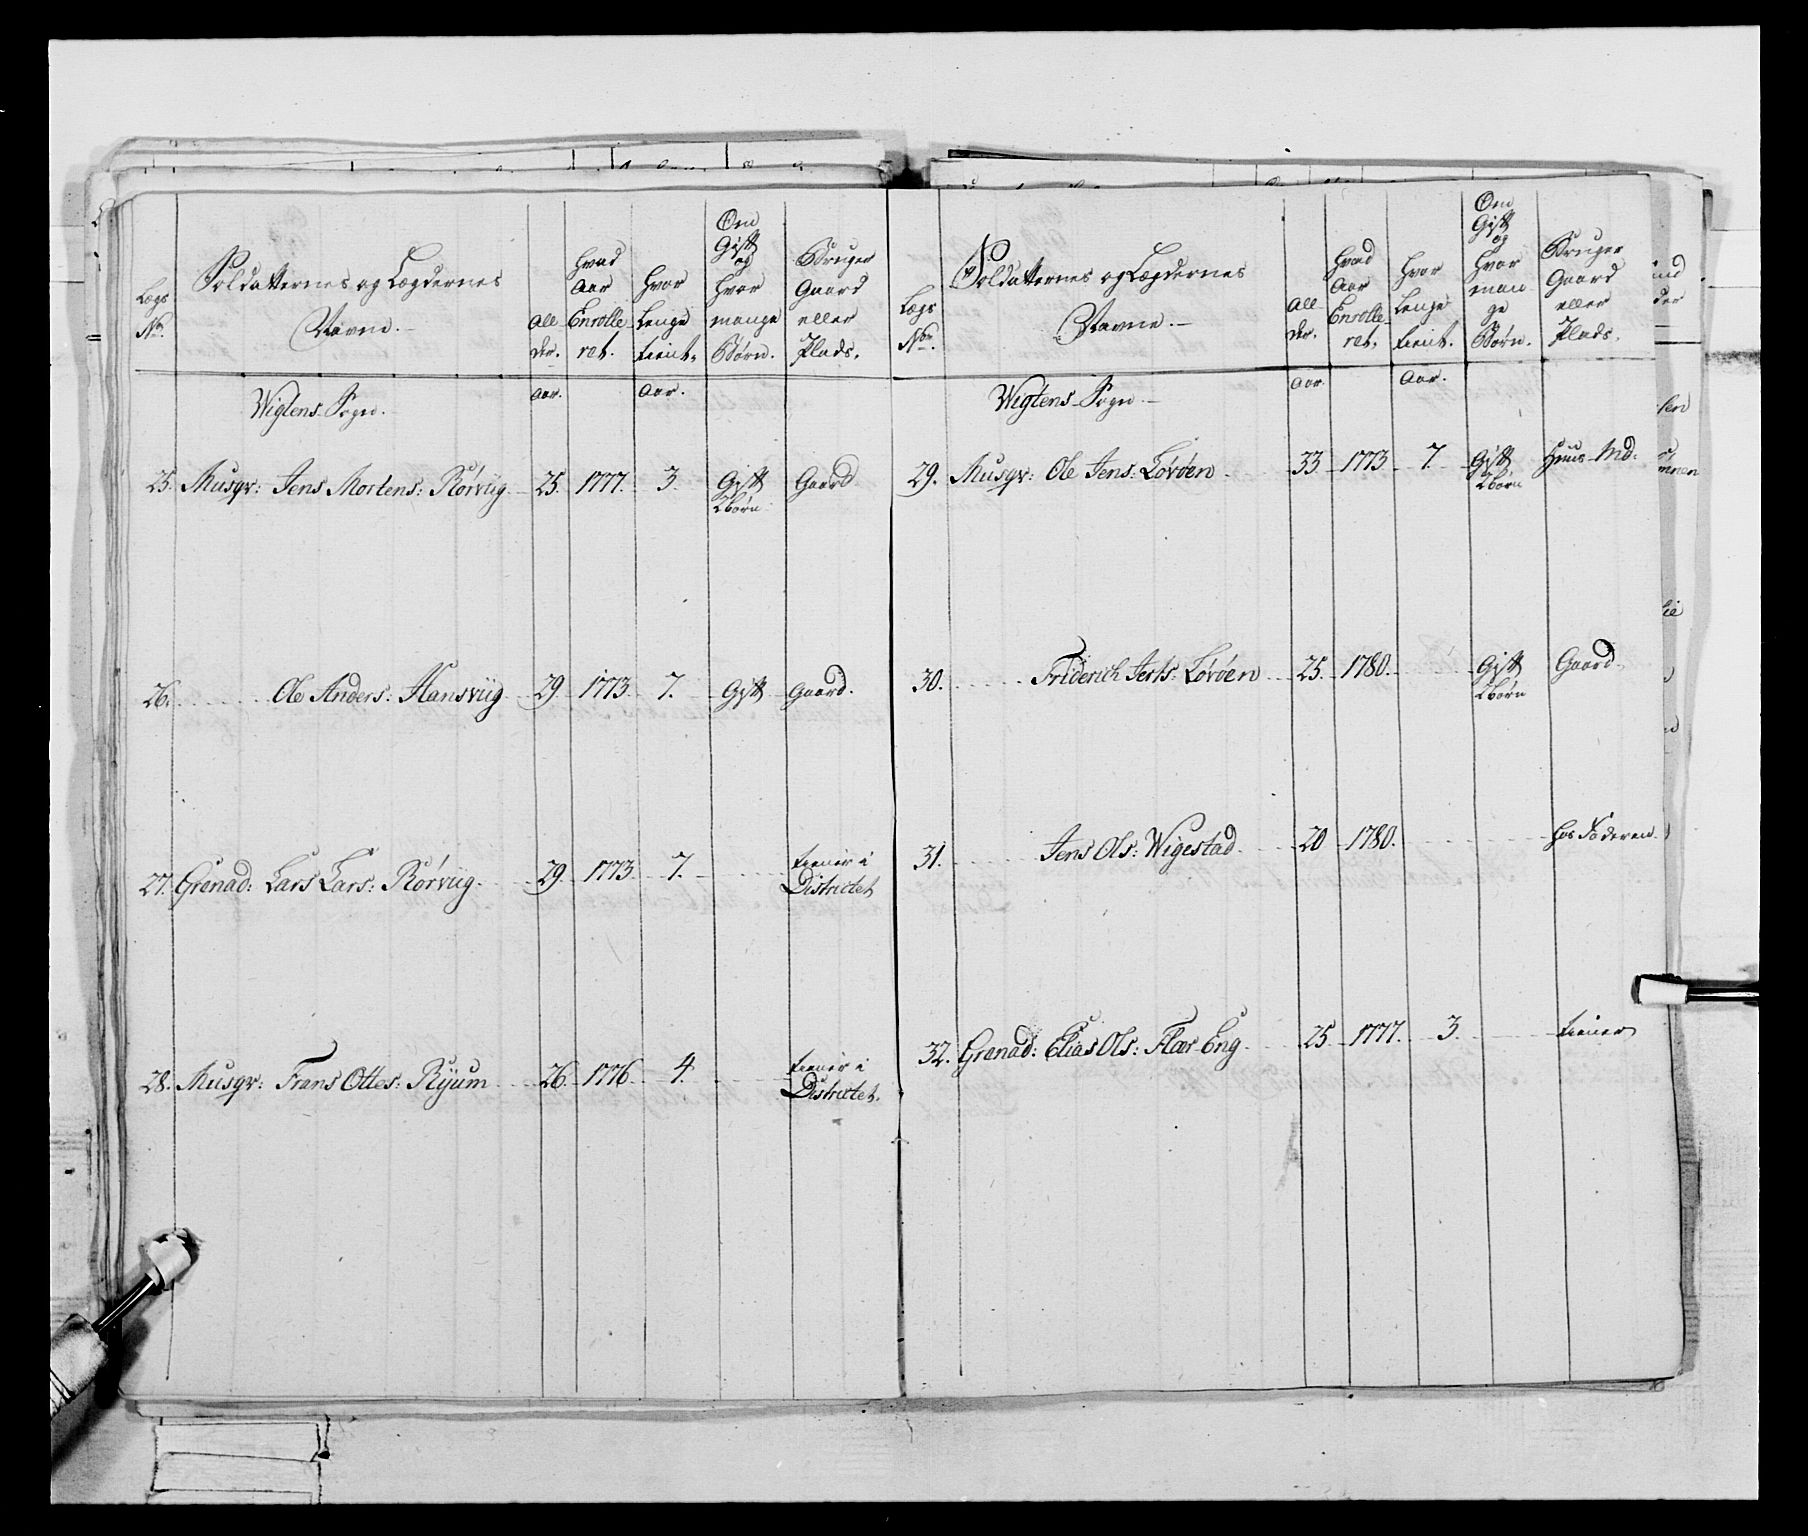 Lægs No.
Soldatternes og Lægdernes Navne.
All der.
Hvad Aar Enrolle ret.
Hvor Lenge tient.
Om Gift og Hvor mange Børn.
Bruger Gaard eller Plads.
Wigtens Sogn.
Aar.
Aar.
25. Musqr: Jens Mortens: Rørviig 25. 1777. 3. Gift 2 børn Gaard
26. Ole Anders: Hansviig 29 1773 7. Gift Gaard.
27. Grenad: Lars Lars: Rørviig. 29. 1773. 7. tiener i Districtet
28. Musqr: Frans Ottes: Ryum 26. 1776. 4. tiener i Districtet.
Lægs No.
Soldatternes og Lægdernes Navne.
All der.
Hvad Aar Enrolle ret.
Hvor Lenge tient.
Om Gift og Hvor man ge Børn.
Bruger Gaard eller Plads.
Wigtens Sogn
Aar.
Aar.
29. Musqr: Ole Jens: Løvøen 33 1773 7. Gift 2 børn Huus Md:
30. Friderich Jens: Løvøen 25. 1780. Gift 2 børn Gaard
31. Jens Ols: Wigestad 20 1780. hos Faderen
32. Grenad: Elias Ols: Flær Eng 25 1777. 3. tiener